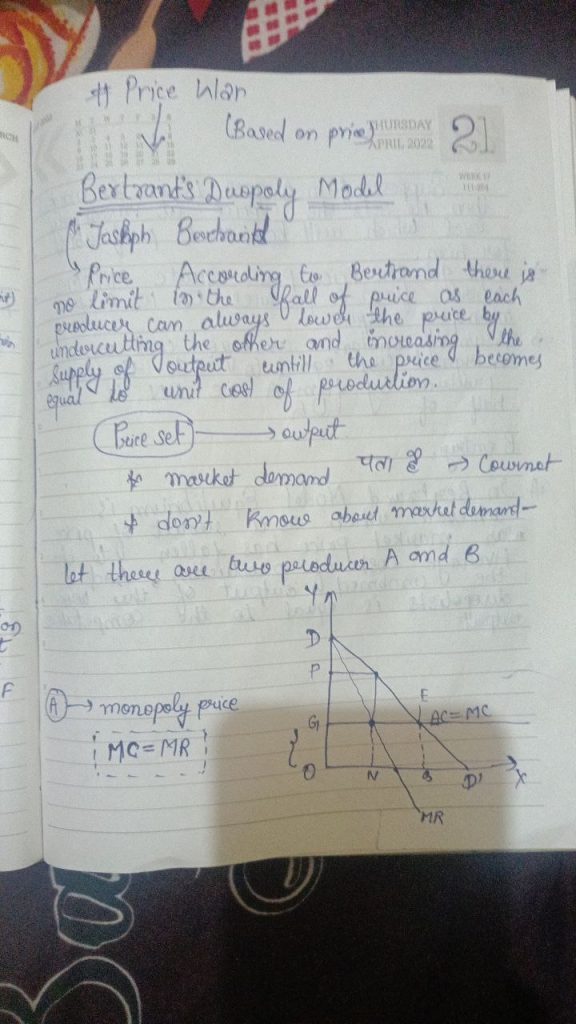 # Price War
(Based on price)
THURSDAY
APRIL 2022
21
WEEK 17
111-254
Bertrant's Duopoly Model
Jashph Bertrand
Price According to Bertrand there is
no limit in the fall of price as each
producer can always lower the price by
undercutting the other and increasing the
supply of output untill the price becomes
equal to unit cost of production.
Price set → output
* market demand पता है → Cournot
* don't know about market demand-
let there are two producer A and B
Y
D
P
E
A → monopoly price
G
AC=MC
MC = MR
O
N
B
D'
X
MR